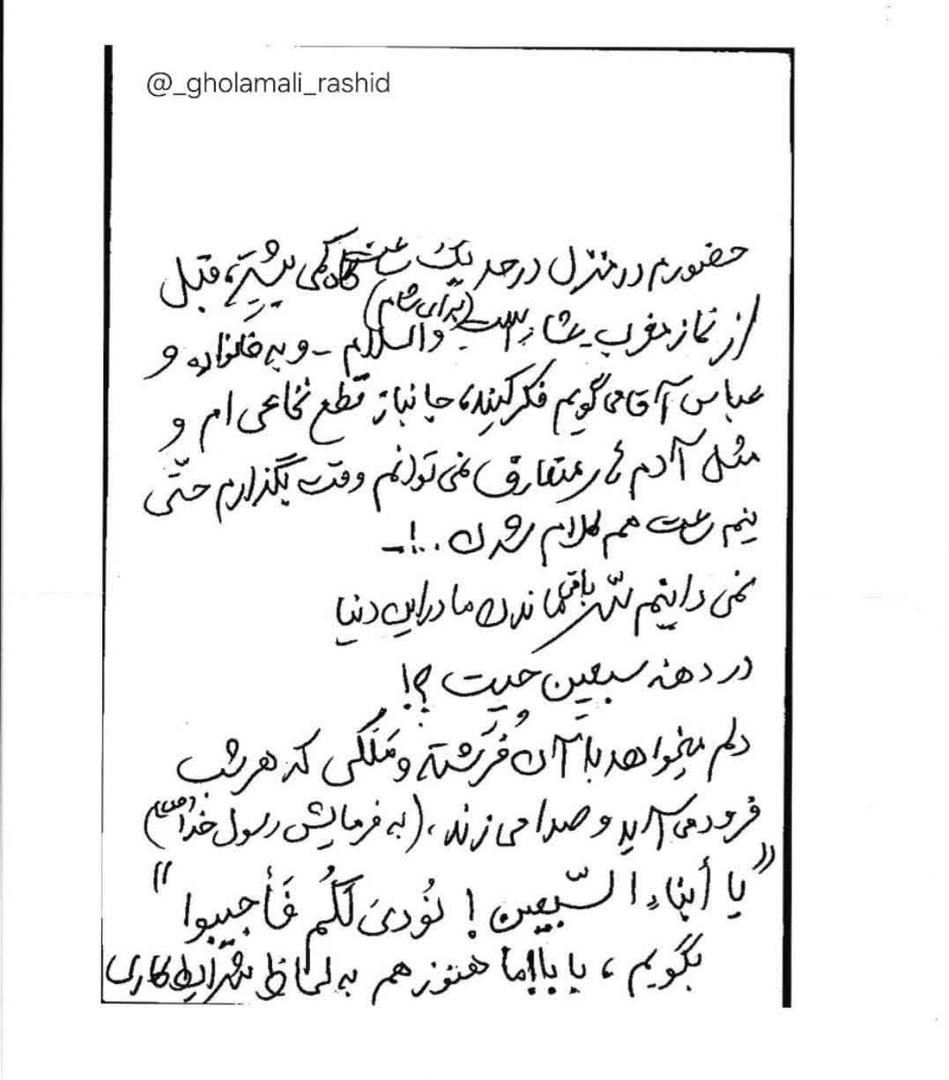 @_gholamali_rashid
حضورم در منزل در حد یک ساعت گاه کمی بیشتر، قبل
از نماز مغرب عشاء است (برای شام) والسلام - و به خانواده و
عباس آقا می‌گویم فکر کنید، جانباز قطع نخاعی ام و
مثل آدم های متعارف نمی توانم وقت بگذارم حتّی
نیم ساعت هم کلام شدن ..!-
نمی دانیم سّر باقی‌ماندن ما در این دنیا
در دهه سبعین چیست ؟!
دلم میخواهد با آن فرشته و مَلَکی که هر شب
فرود می آید و صدا می زند، (به فرمایش رسول خدا (ص))
"یا أبناء السّبعین! نُودیَ لَکُم فَأجیبوا"
بگویم، بابا ما هنوز هم به لحاظ شرایط کاری